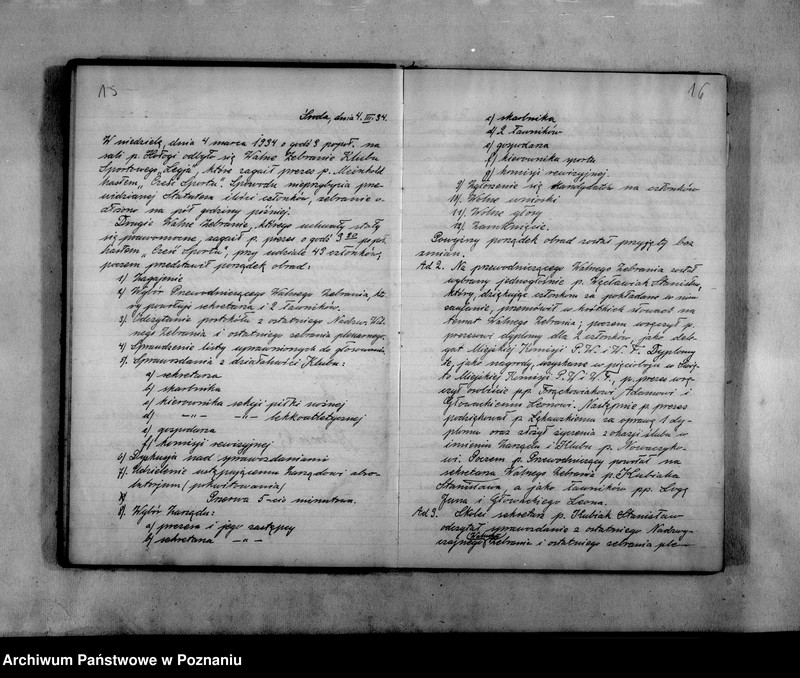 15
Środa, dnia 4. III. 34.
W niedzielę, dnia 4 marca 1934 o godz 3 popoł. na
sali p. Hołogi odbyło się Walne Zebranie Klubu
Sportowego „Legja”, które zagaił prezes p. Meinhold
hasłem „Cześć Sportu”. Spowodu nieprzybycia prze-
widzianej Statutem ilości członków, zebranie o-
dłożono na pół godziny później.
Drugie Walne Zebranie, którego uchwały stały
się prawomocne, zagaił p. prezes o godz 3 30 popoł.
hasłem „Cześć Sportu”, przy udziale 43 członków,
poczem przedstawił porządek obrad:
1) Zagajenie
2) Wybór Przewodniczącego Walnego Zebrania, któ-
ry powoła sekretarza i 2 ławników.
3) Odczytanie protokółu z ostatniego Nadzw. Wal-
nego Zebrania i ostatniego zebrania plenarnego.
4) Sprawdzenie listy uprawnionych do głosowania.
5) Sprawozdania z działalności Klubu:
a) sekretarza
b) skarbnika
c) kierownika sekcji piłki nożnej
d) -„- -„- lekkoatletycznej
e) gospodarza
f) komisji rewizyjnej
6) Dyskusja nad sprawozdaniami
7) Udzielenie ustępującemu Zarządowi abso-
lutorjum (pokwitowania)
Przerwa 5-cio minutowa.
8) Wybór Zarządu:
a) prezesa i jego zastępcy
b) sekretarza -„-
16
c) skarbnika
d) 2 ławników
e) gospodarza
f) kierownika sportu
g) komisji rewizyjnej.
9) Zgłoszenie się kandydatów na członków
10) Wolne wnioski
11) Wolne głosy
12) Zamknięcie.
Powyższy porządek obrad został przyjęty bez
zmian.
Ad 2. Na przewodniczącego Walnego Zebrania został
wybrany jednogłośnie p. Węcławiak Stanisław,
który, dziękując członkom za pokładane w nim
zaufanie, przemówił w krótkich słowach na
temat Walnego Zebrania; poczem wręczył p.
prezesowi dyplomy dla 2 członków, jako dele-
gat Miejskiej Komisji P. W. i W. F. Dyplomy
te, jako nagrody, uzyskane w pięcioboju w Świę-
to Miejskiej Komisji P. W. i W. F., p. prezes wrę-
czył osobiście pp. Frąckowiakowi Adamowi i
Głowackiemu Leonowi. Następnie p. prezes
podziękował p. Łękawskiemu za oprawę 1 dy-
plomu oraz złożył życzenia z okazji ślubu w
imieniu Zarządu i Klubu p. Nowaczyko-
wi. Poczem p. Przewodniczący powołał na
sekretarza Walnego Zebrania p. Kubiaka
Stanisława, a jako ławników pp.
Jana i Głowackiego Leona.
Ad 3. Skolei sekretarz p. Kubiak Stanisław
odczytał sprawozdanie z ostatniego Nadzwy-
czajnego Walnego Zebrania i ostatniego zebrania ple-
Archiwum Państwowe w Poznaniu